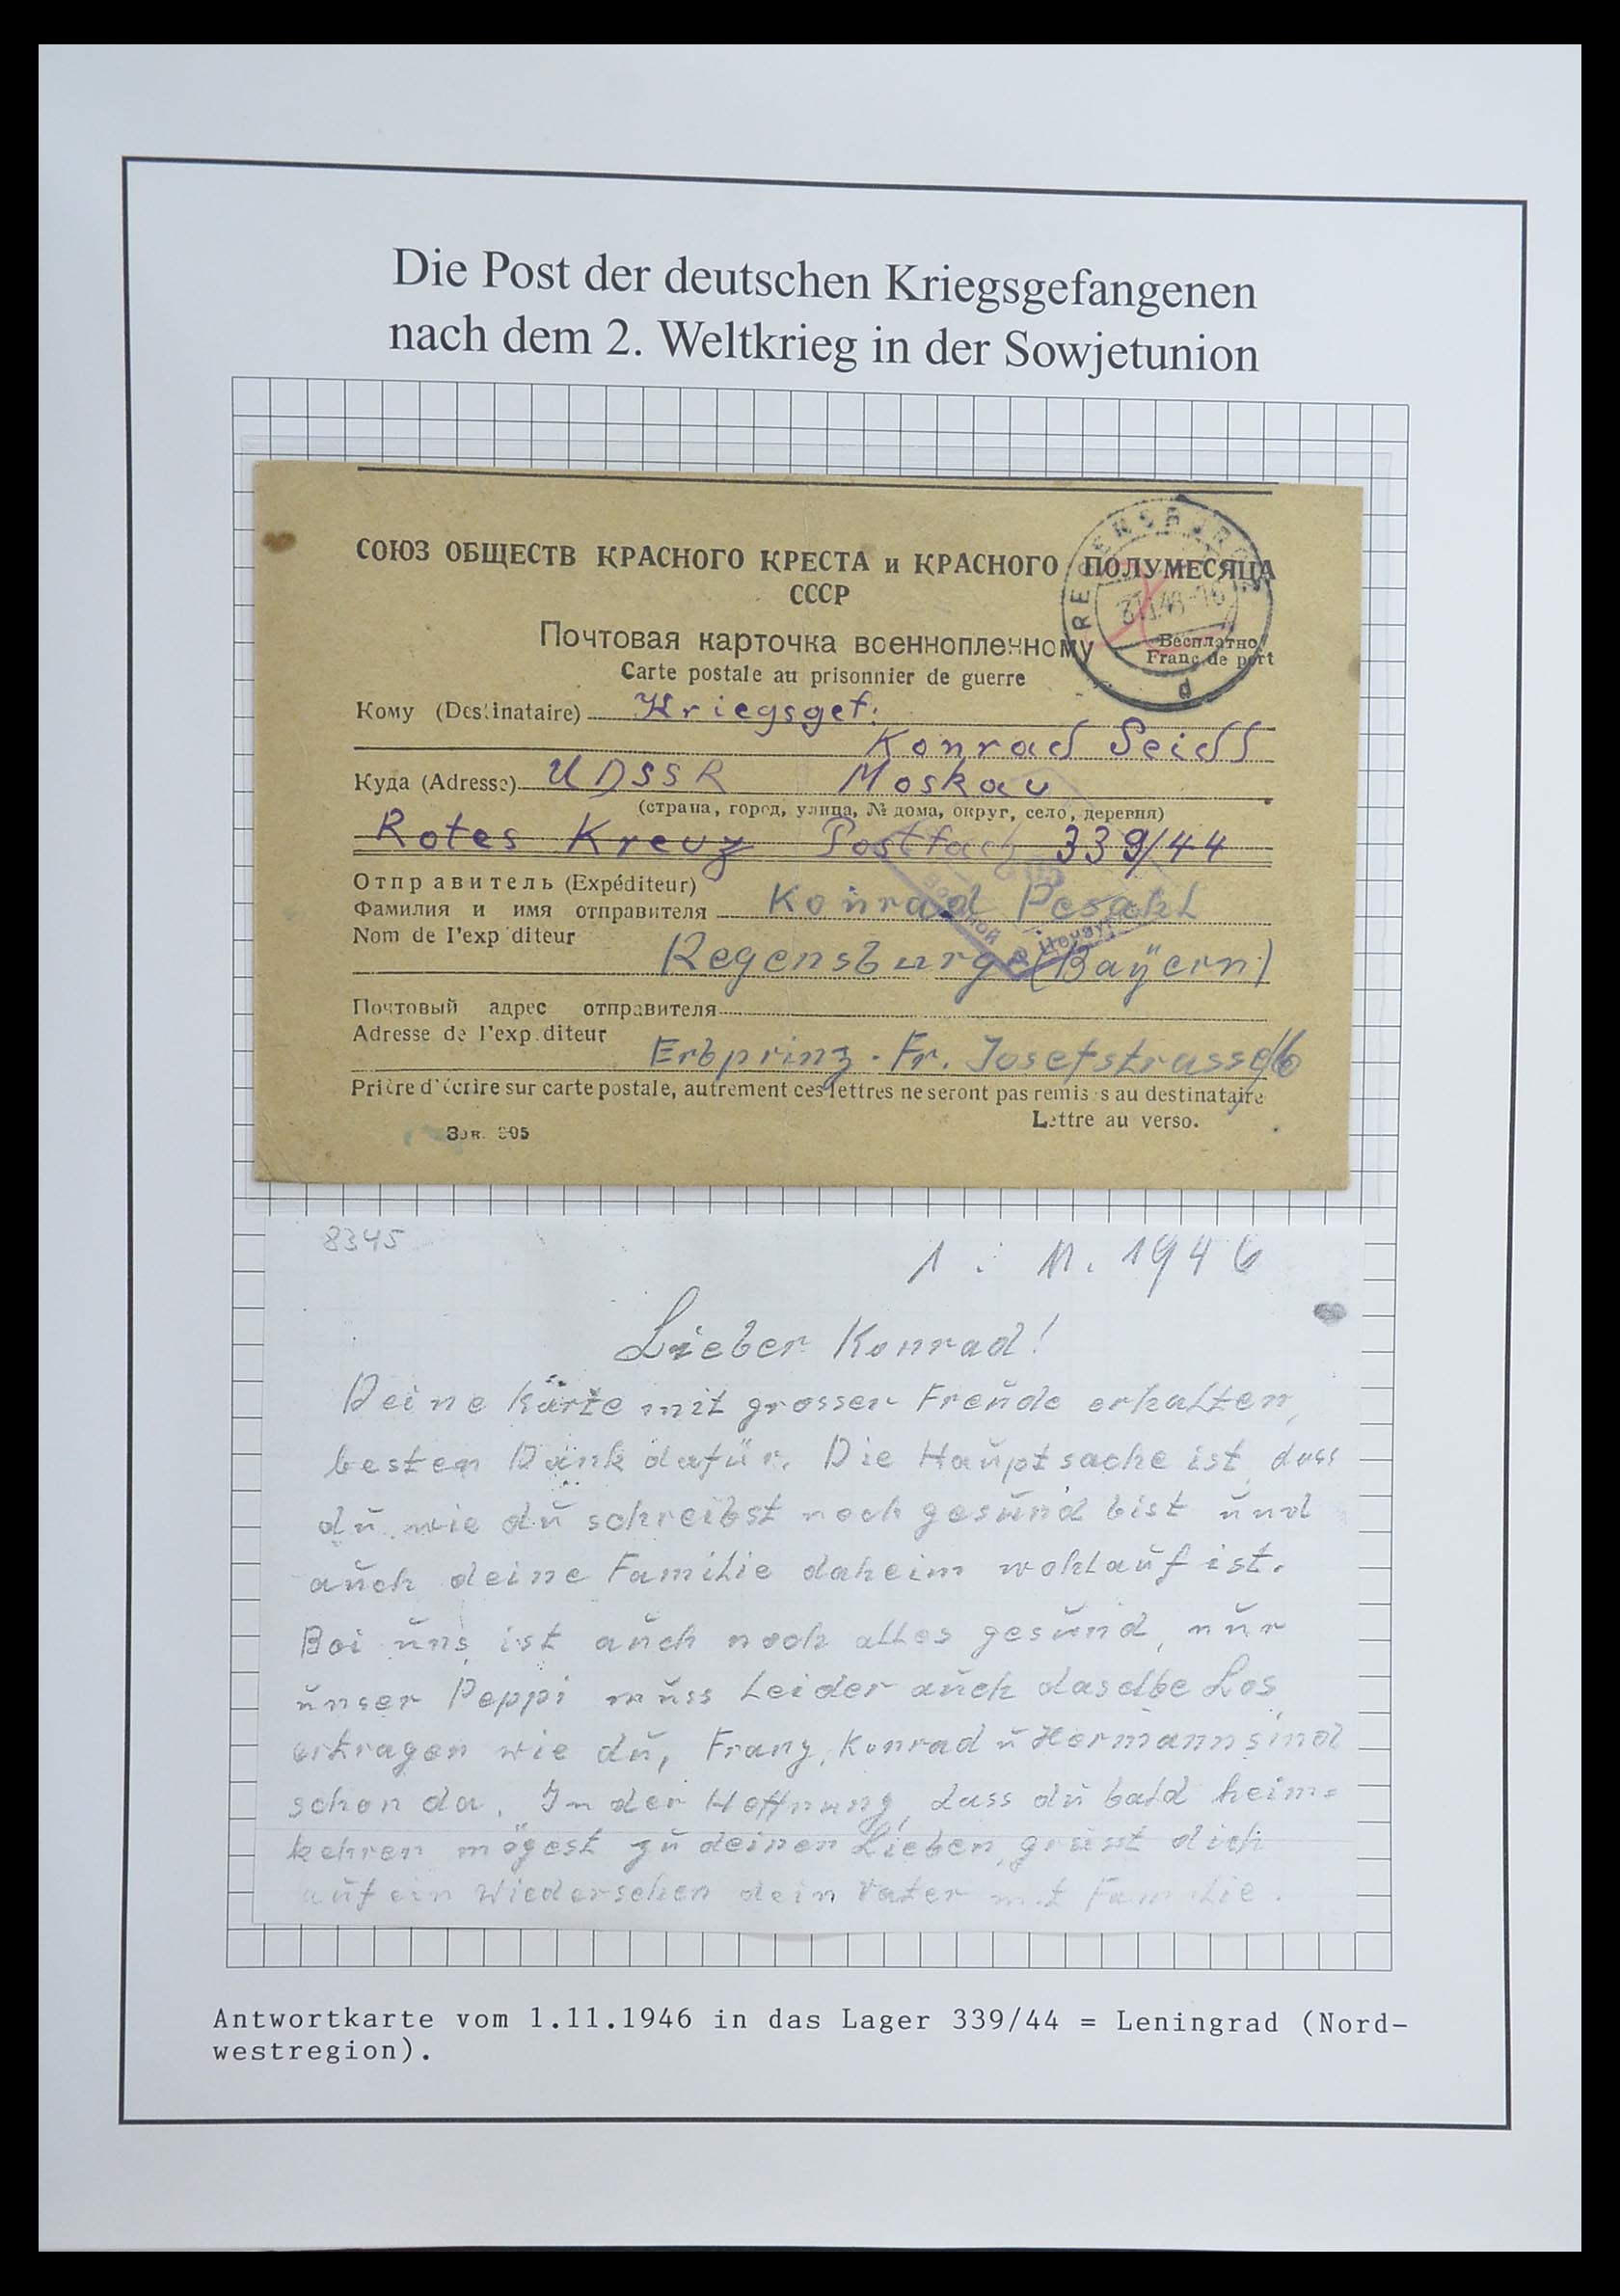 Die Post der deutschen Kriegsgefangenen
nach dem 2. Weltkrieg in der Sowjetunion
СОЮЗ ОБЩЕСТВ КРАСНОГО КРЕСТА и КРАСНОГО ПОЛУМЕСЯЦА
СССР
REGENSBURG
d
Почтовая карточка военнопленному
Бесплатно
Franc de port
Carte postale au prisonnier de guerre
Кому (Destinataire) Kriegsgef.
Konrad Seidl
Куда (Adresse) UDSSR Moskau
(страна, город, улица, № дома, округ, село, деревня)
Rotes Kreuz Postfach 339/44
Отправитель (Expéditeur)
Фамилия и имя отправителя Konrad
Nom de l'exp diteur
Regensburg (Bayern)
Почтовый адрес отправителя
Adresse de l'exp diteur
Erbprinz. Fr. Josefstrasse
Prière d'écrire sur carte postale, autrement ces lettres ne seront pas remis s au destinataire
Lettre au verso.
Зак. 305
8345
1. 11. 1946
Lieber Konrad!
Deine Karte mit grosser Freude erhalten,
besten Dank dafür. Die Hauptsache ist, dass
du wie du schreibst noch gesund bist und
auch deine Familie daheim wohlauf ist.
Bei uns ist auch noch alles gesund, nur
unser Peppi muss leider auch dasselbe Los
ertragen wie du, Franz, Konrad u Hermann sind
schon da. In der Hoffnung, dass du bald heim=
kehren mögest zu deinen Lieben, grüsst dich
auf ein Wiedersehen dein Vater mit Familie.
Antwortkarte vom 1.11.1946 in das Lager 339/44 = Leningrad (Nord-
westregion).